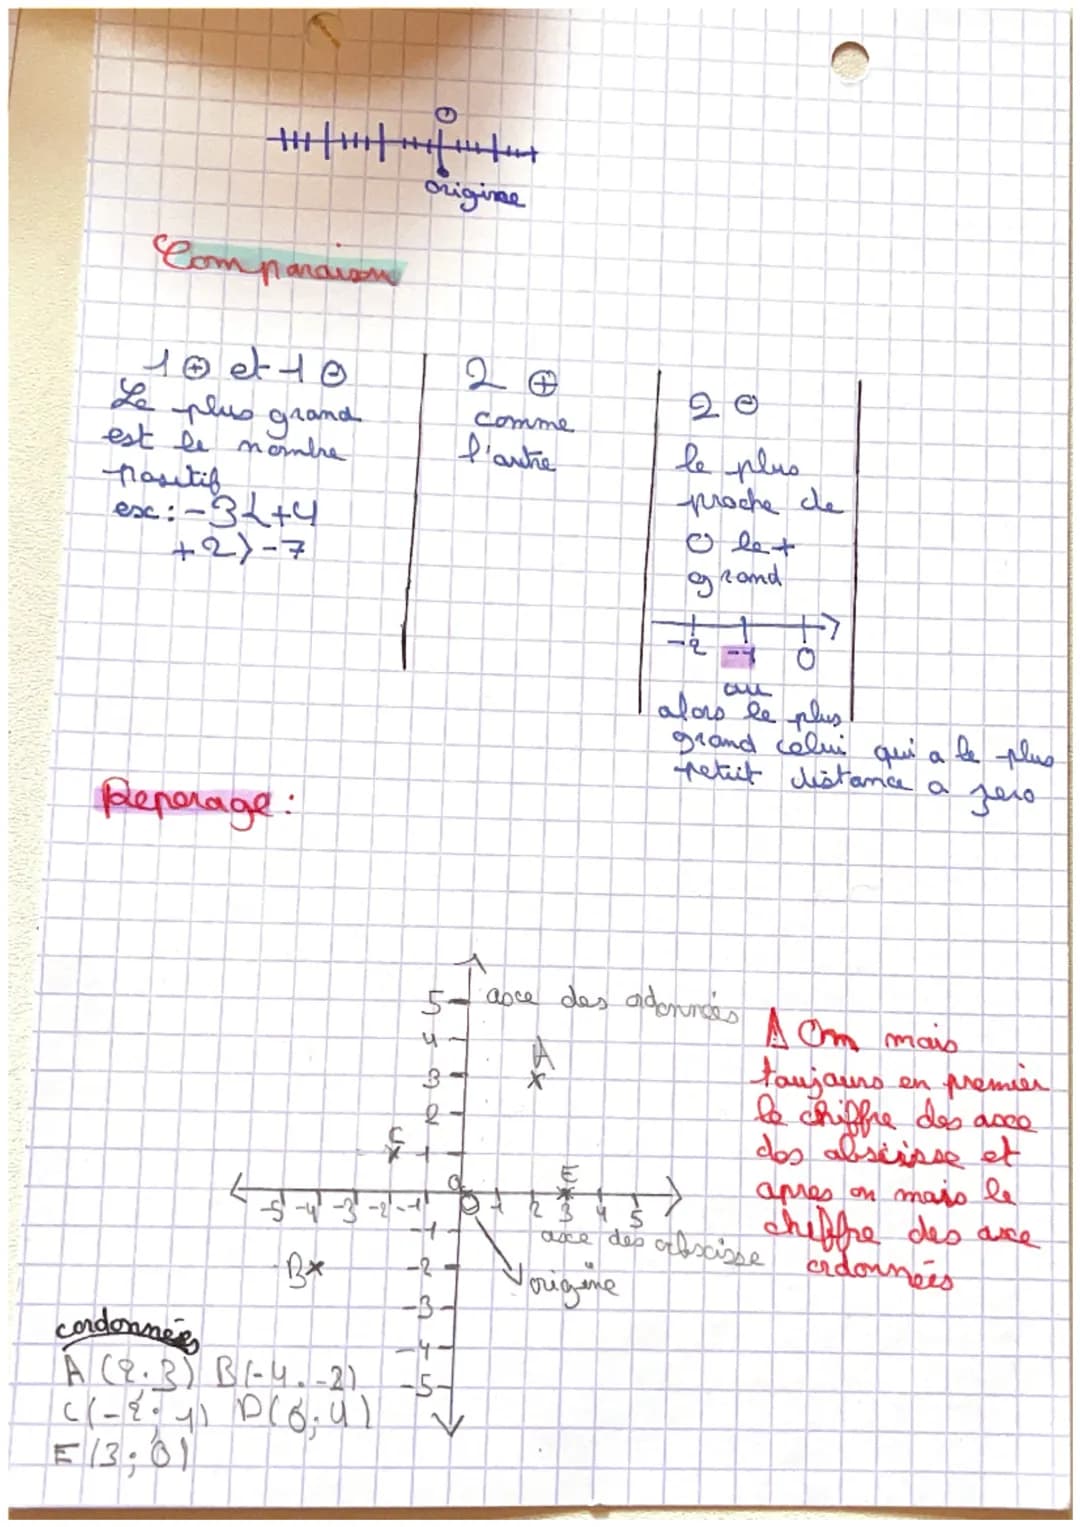 0
origine
Comparaison
1 ⊕ et 1 ⊖
Le plus grand
est le nombre
positif
ex : -3 < +4
+2 > -7
2 ⊕
comme
l'autre
2 ⊖
le plus
proche de
0 le +
grand
-2 -1 0
ou
alors le plus
grand celui qui a le plus
petit distance a zero
Reperage :
5 axe des ordonnés
4
A
3
2
C
1
E
-5 -4 -3 -2 -1 0 1 2 3 4 5
-1
axe des abscisse
B -2
origine
-3
-4
-5
⚠ On mais
toujours en premier
le chiffre des axe
des absisse et
apres on mais le
chiffre des axe
ordonnées
cordonnées
A (2 ; 3) B (-4 ; -2)
C (-2 ; 1) D (6 ; 4)
E (3 ; 0)